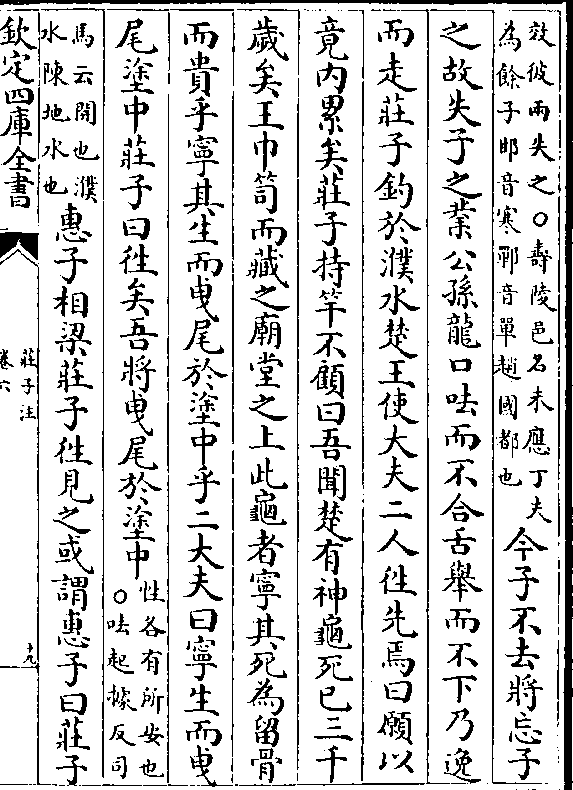 效彼兩失之〇壽陵邑名未應丁夫
為餘子邯音寒鄲音單趙國都也
今子不去將忘子
之故失子之業公孫龍口呿而不合舌舉而不下乃逸
而走莊子釣於濮水楚王使大夫二人徃先焉曰願以
竟内累矣莊子持竿不顧曰吾聞楚有神龜死已三千
歲矣王巾笥而藏之廟堂之上此龜者寧其死為留骨
而貴乎寧其生而曵尾於塗中乎二大夫曰寧生而曵
尾塗中莊子曰徃矣吾將曵尾於塗中
性各有所安也
〇呿起據反司
馬云開也濮
水陳地水也
惠子相梁莊子徃見之或謂惠子曰莊子
欽定四庫全書
莊子注
卷六
十九